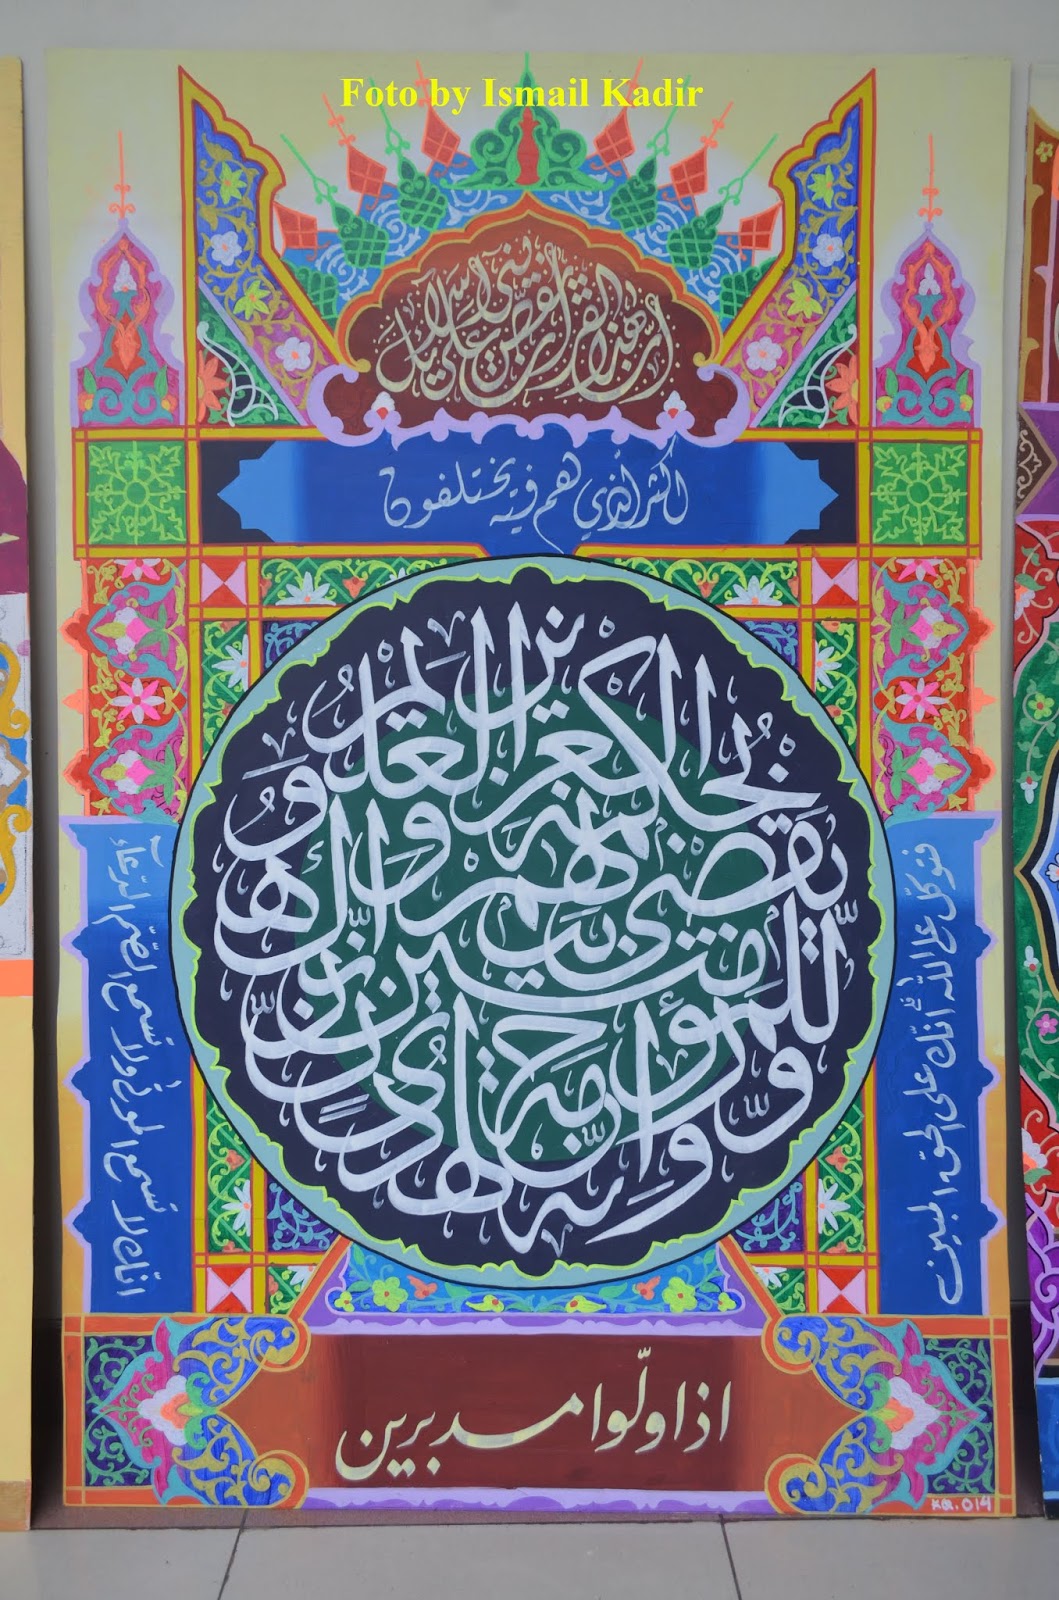 Foto by Ismail Kadir
إنّ هذا القرآن يقص على بني إسرائيل
اكثر الذي هم فيه يختلفون
وإنه لهدى ورحمة للمؤمنين إن ربك يقضي بينهم بحكمه وهو العزيز العليم
فتوكّل على اللّه انّك على الحقّ المبين
انّك لا تسمع الموتى ولا تسمع الصّمّ الدّعآء
اذا ولّوا مدبرين